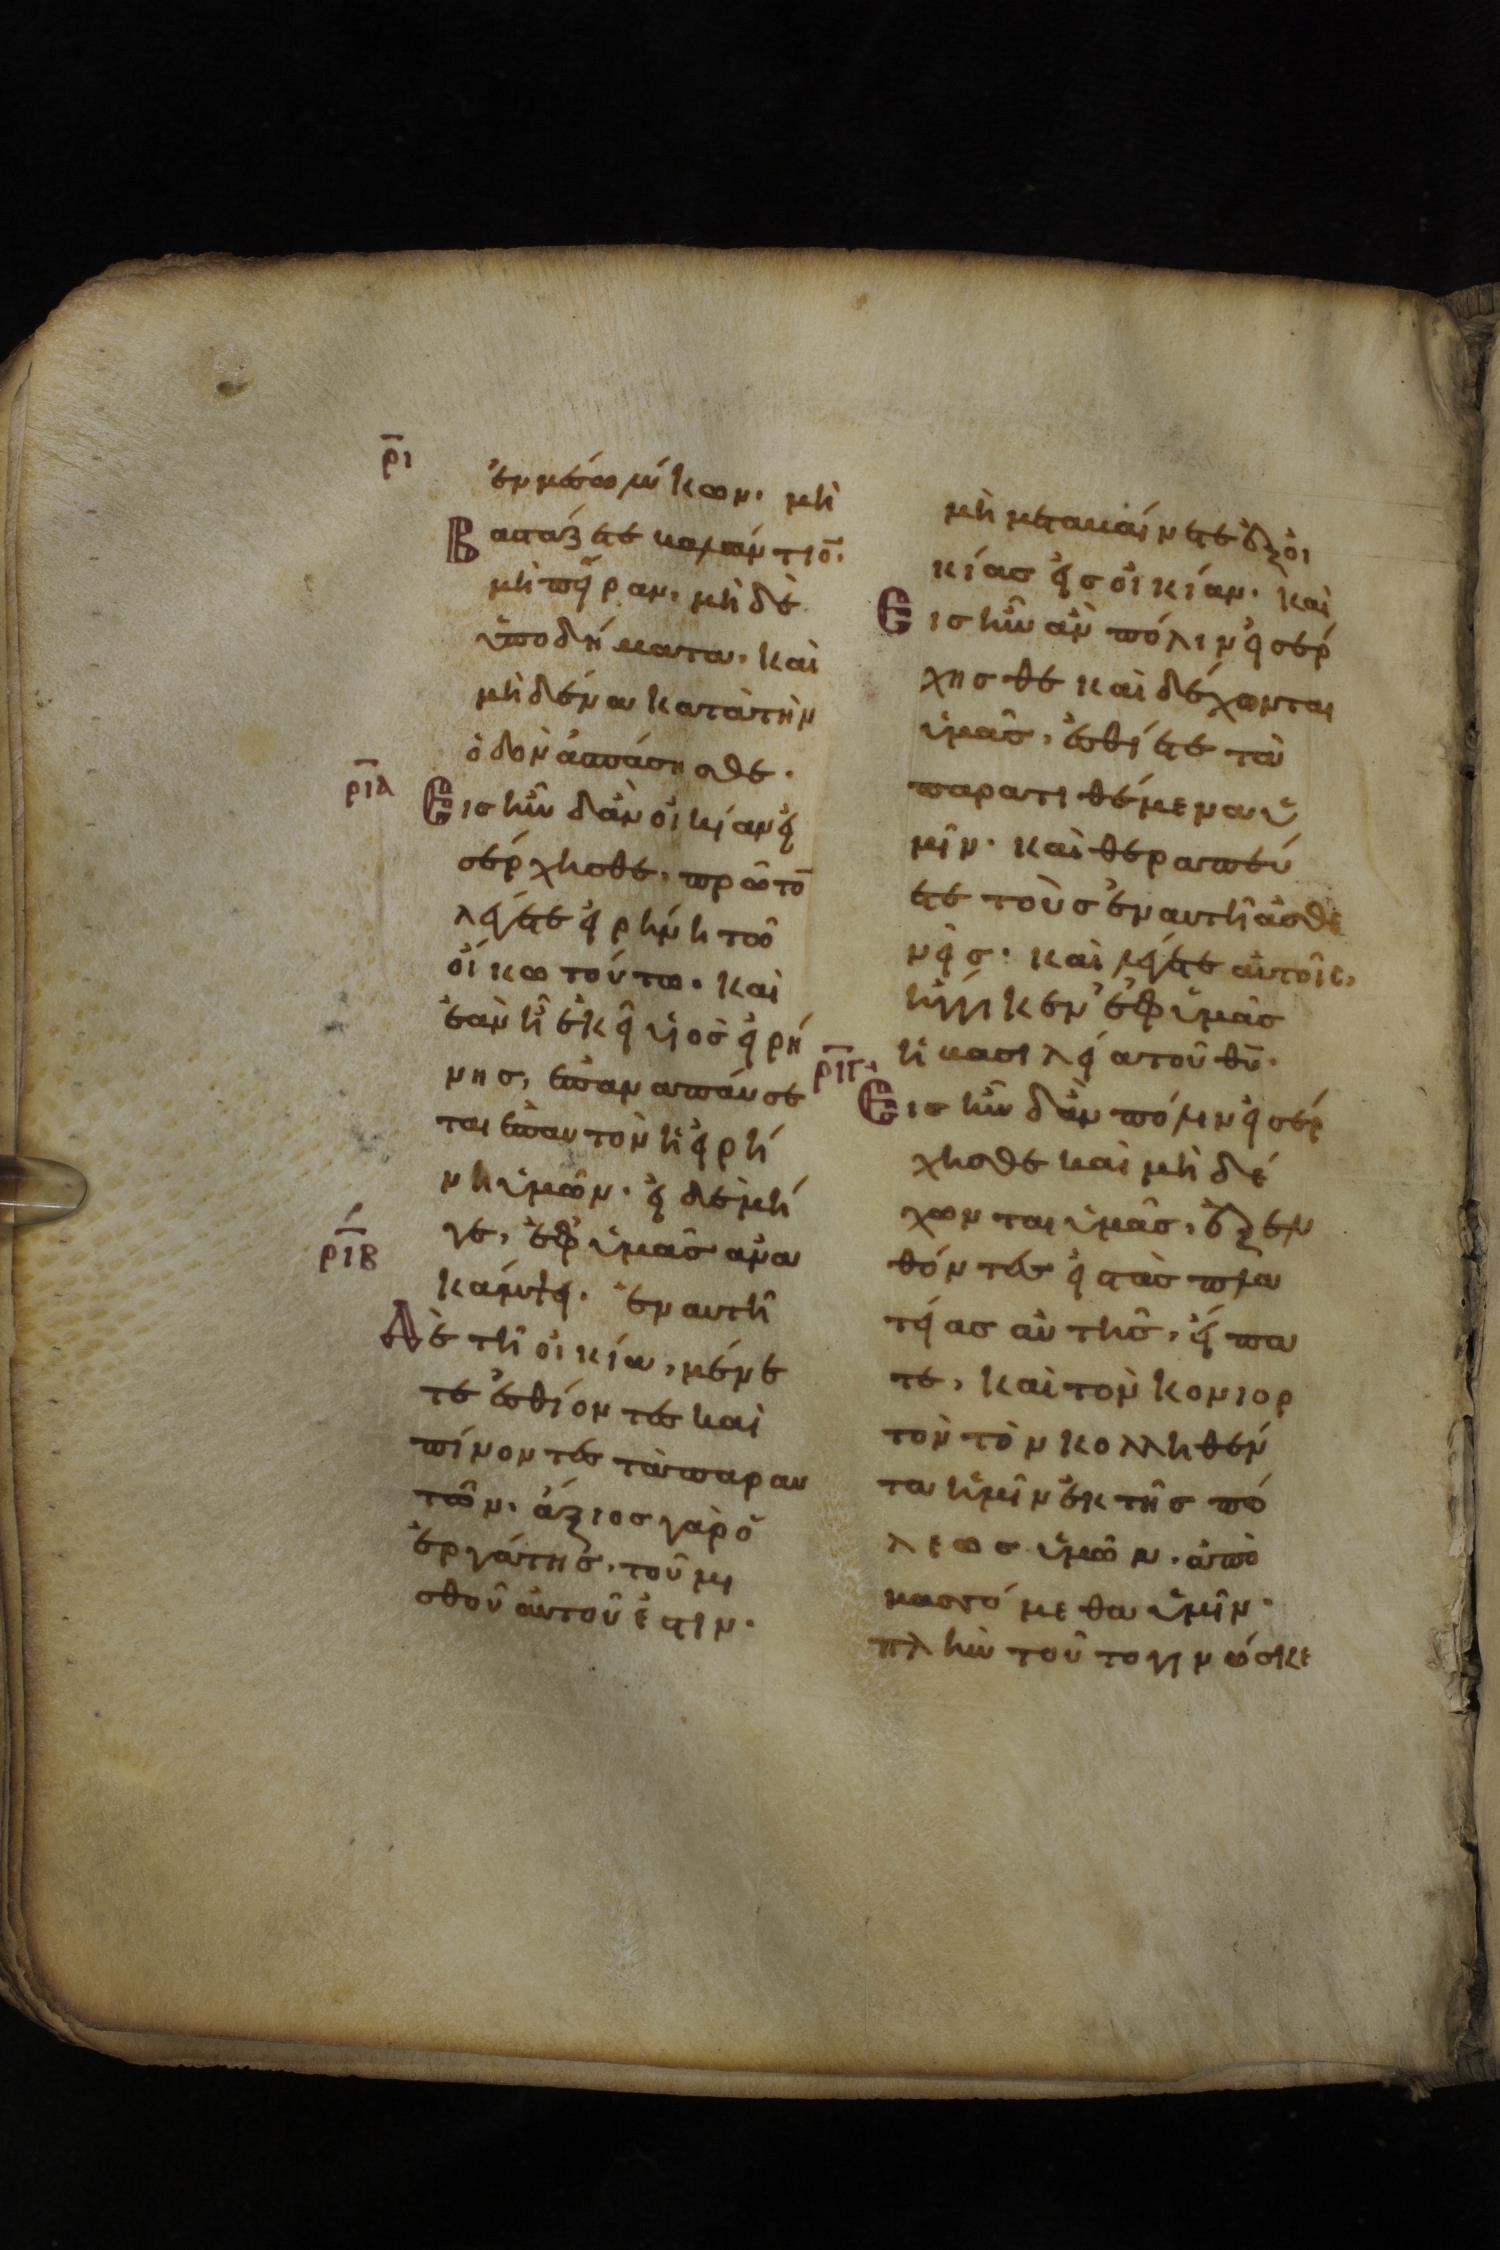 ρι
ἐν μέσω λύκων. μὴ
Βασταζετε βαλάντιο̅.
μὴ πήραν, μὴ δὲ
ὑποδήματα. καὶ
μὴ δένα κατὰ τὴν
ὁδὸν ἀσπάσησθε.
ρια
Εἰσ ἣν δἂν οἰκίαν εἰ
σέρχησθε, πρῶτο̅
λέγετε εἰρήνη τῶ
οἴκω τούτω. καὶ
ἐὰν ἦ ἐκεῖ υἱὸσ εἰρή
νησ, ἐπαναπαύσε
ται ἐπαυτὸν ἡ εἰρή
νη ὑμῶν. εἰ δὲ μή
γε, ἐφ ὑμᾶσ ανα
κάμψει. ἐν αυτῆ
ριβ
Δὲ τῆ οἰκία, μένε
τε ἐσθίοντεσ καὶ
πίνοντεσ τὰ παραυ
τῶν. ἄξιοσ γὰρ ὁ
ἐργάτησ, τοῦ μι
σθοῦ αὐτοῦ ἐστιν.
μὴ μεταβαίνετε ἐξ οἰ
κίασ εἰσ οἰκίαν. καὶ
Εἰσ ἣν ἂν πόλιν εἰσέρ
χησθε καὶ δέχωνται
ὑμᾶσ, ἐσθίετε τὰ
παρατιθέμενα ὑ
μῖν. καὶ θεραπεύ
ετε τοὺσ ἐν αυτῆ ἀσθε
νεῖσ. καὶ λέγετε αὐτοῖσ,
ἤγγικεν ἐφ ὑμᾶσ
ἡ βασιλεία τοῦ θυ̅.
ριγ
Εἰσ ἣν δἂν πόλιν εἰσέρ
χησθε καὶ μὴ δέ
χωνται ὑμᾶσ, ἐξελ
θόντεσ εἰσ τὰσ πλα
τείασ αὐτῆσ, εἴπα
τε, καὶ τὸν κονιορ
τὸν τὸν κολληθέν
τα ἡμῖν ἐκ τῆσ πό
λεωσ ὑμῶν, ἀπο
μασσόμεθα ὑμῖν.
πλὴν τοῦτο γινώσκε